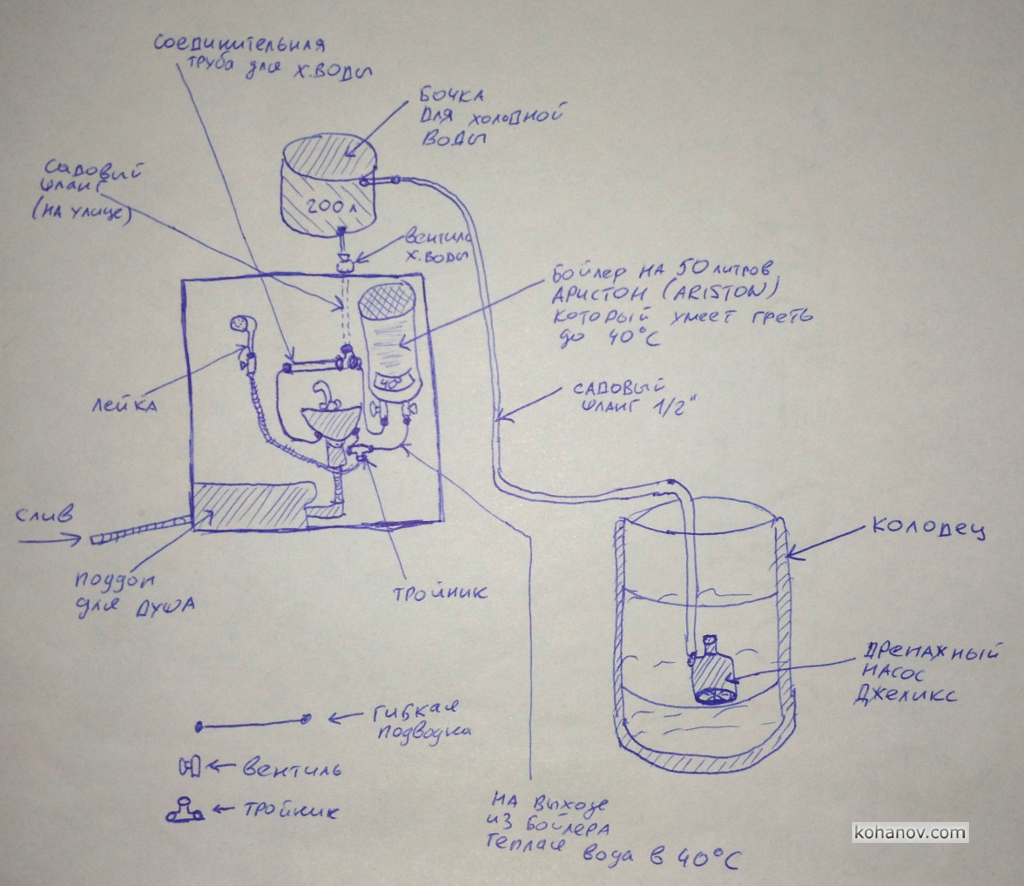 Соединительная
труба для х.воды
Бочка
для холодной
воды
Садовый
шланг
(на улице)
200л
вентиль
х.воды
Бойлер на 50 литров
Аристон (ARISTON)
который умеет греть
до 40°C
40°
Лейка
Садовый
шланг 1/2"
Слив
Колодец
Поддон
для душа
Тройник
Дренажный
насос
Джеликс
Гибкая
подводка
Вентиль
Тройник
На выходе
из бойлера
теплая вода в 40°C
kohanov.com